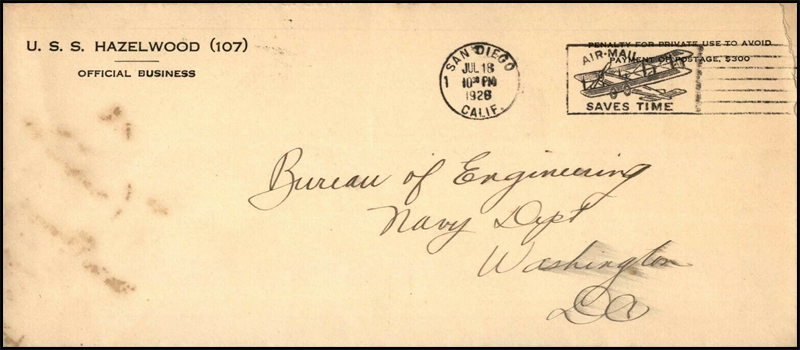 U. S. S. HAZELWOOD (107)
OFFICIAL BUSINESS
SAN DIEGO
1
JUL 18
10 30 PM
1928
CALIF.
AIR-MAIL
SAVES TIME
PENALTY FOR PRIVATE USE TO AVOID
PAYMENT OF POSTAGE, $300
Bureau of Engineering
Navy Dept
Washington
DC